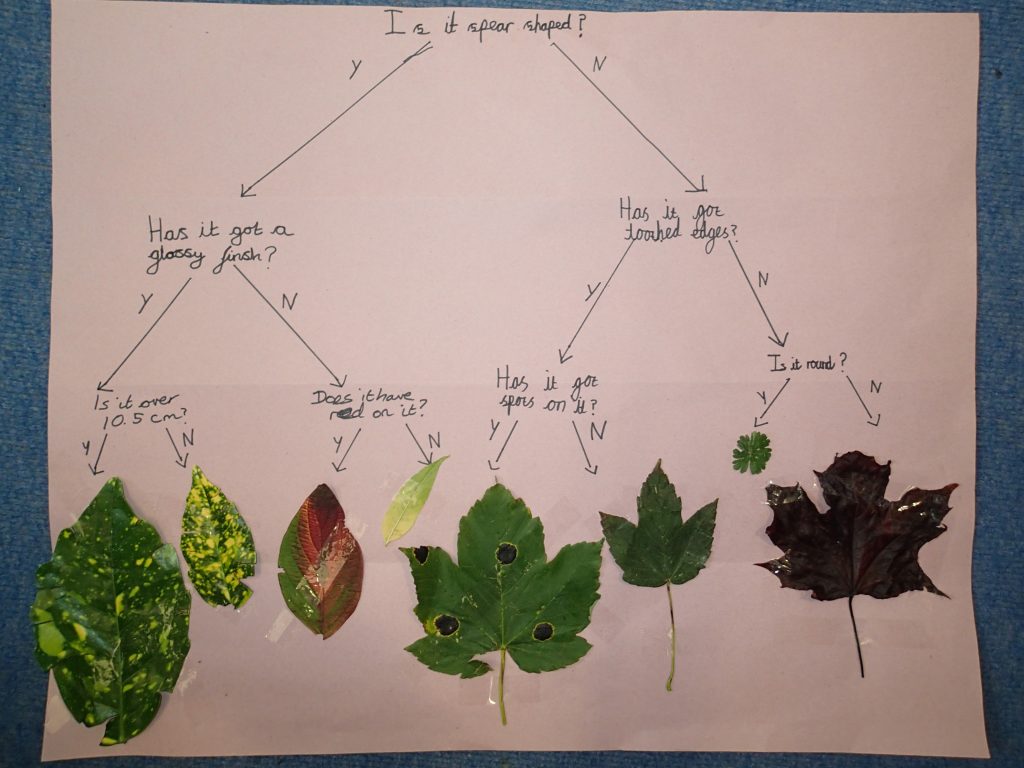 Is it spear shaped?
Y
N
Has it got a
glossy finish?
Has it got
toothed edges?
Y
N
Y
N
Is it over
10.5 cm?
Does it have
red on it?
Has it got
spots on it?
Is it round?
Y
N
Y
N
Y
N
Y
N